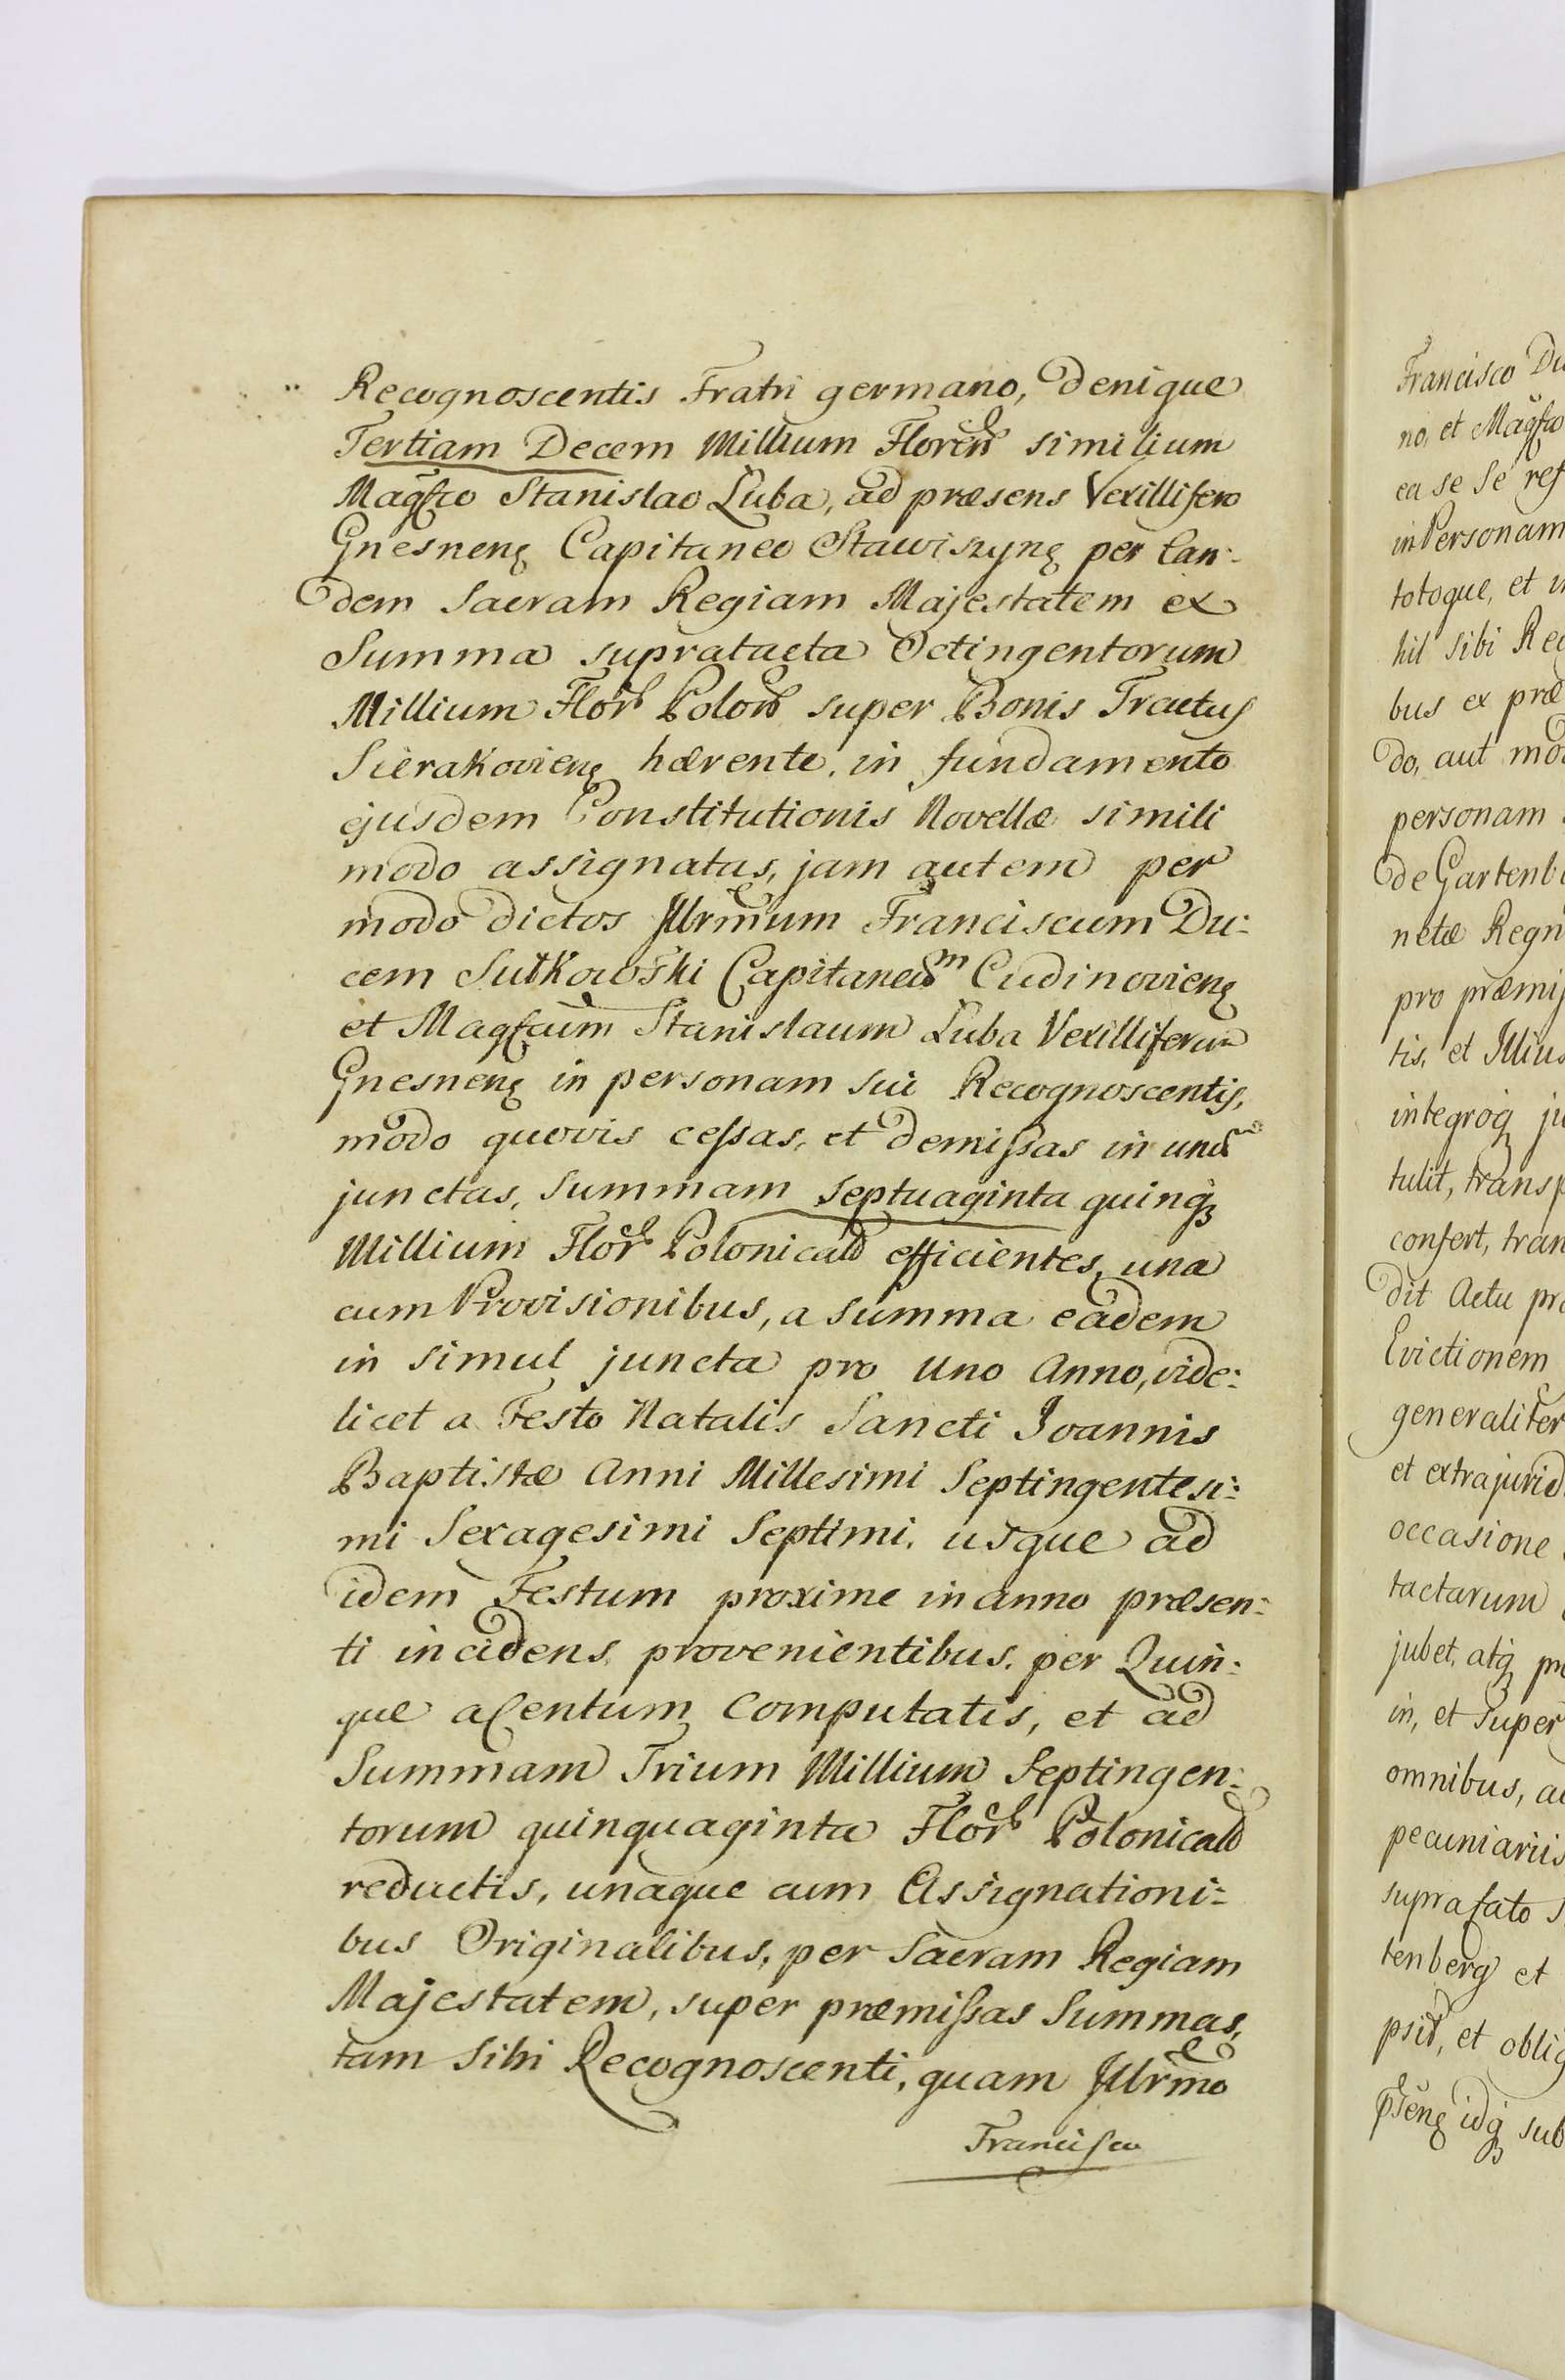 Recognoscentis Fratri germano, Denique
Tertiam Decem Millium Floren similium
Magfco Stanislao Łuba, ad præsens Vexillifero
Gnesnenς Capitaneo Stawiszynς per Ean-
dem Sacram Regiam Majestatem ex
Summa supratacta Octingentorum
Millium Flor Polon super Bonis Tractus
Sierakovienς hærente, in fundamento
ejusdem Constitutionis Novellæ simili
modo assignatas, jam autem per
modo dictos Illrmum Franciscum Du:
cem Sułkowski Capitaneum Cudinovienς
et Magfcum Stanislaum Łuba Vexilliferum
Gnesnenς in personam sui Recognoscentis,
modo quovis cessas, et demissas in unam
junctas, Summam septuaginta quinqꝫ
Millium Flor Polonical efficientes, una
cum Provisionibus, a summa eadem
in simul juncta pro uno Anno, vide:
licet a Festo Natalis Sancti Joannis
Baptistæ Anni Millesimi Septingentesi:
mi Sexagesimi Septimi, usque ad
idem Festum proxime in anno præsen:
ti incidens, provenientibus, per Quin:
que a Centum Computatis, et ad
Summam Trium Millium Septingen:
torum quinquaginta Flor Polonical
reductis, unaque cum Assignationi:
bus Originalibus, per Sacram Regiam
Majestatem, super præmissas Summas,
tam Sibi Recognoscenti, quam Illrmo
Francisco
Francisco Du
no, et Magfco
ea se se res
in Personam
totoque, et i
hil sibi Rec
bus ex præ
do, aut mo
personam
de Gartenb
netæ Regn
pro præmis
tis, et Illius
integroqꝫ ju
tulit, transf
confert, tran
dit Actu pr
Evictionem
generaliter
et extrajurid
occasione
tactarum
jubet, atqꝫ pr
in, et super
omnibus, a
pecuniariis
suprafato s
tenberg et
psit, et oblig
idqꝫ sub